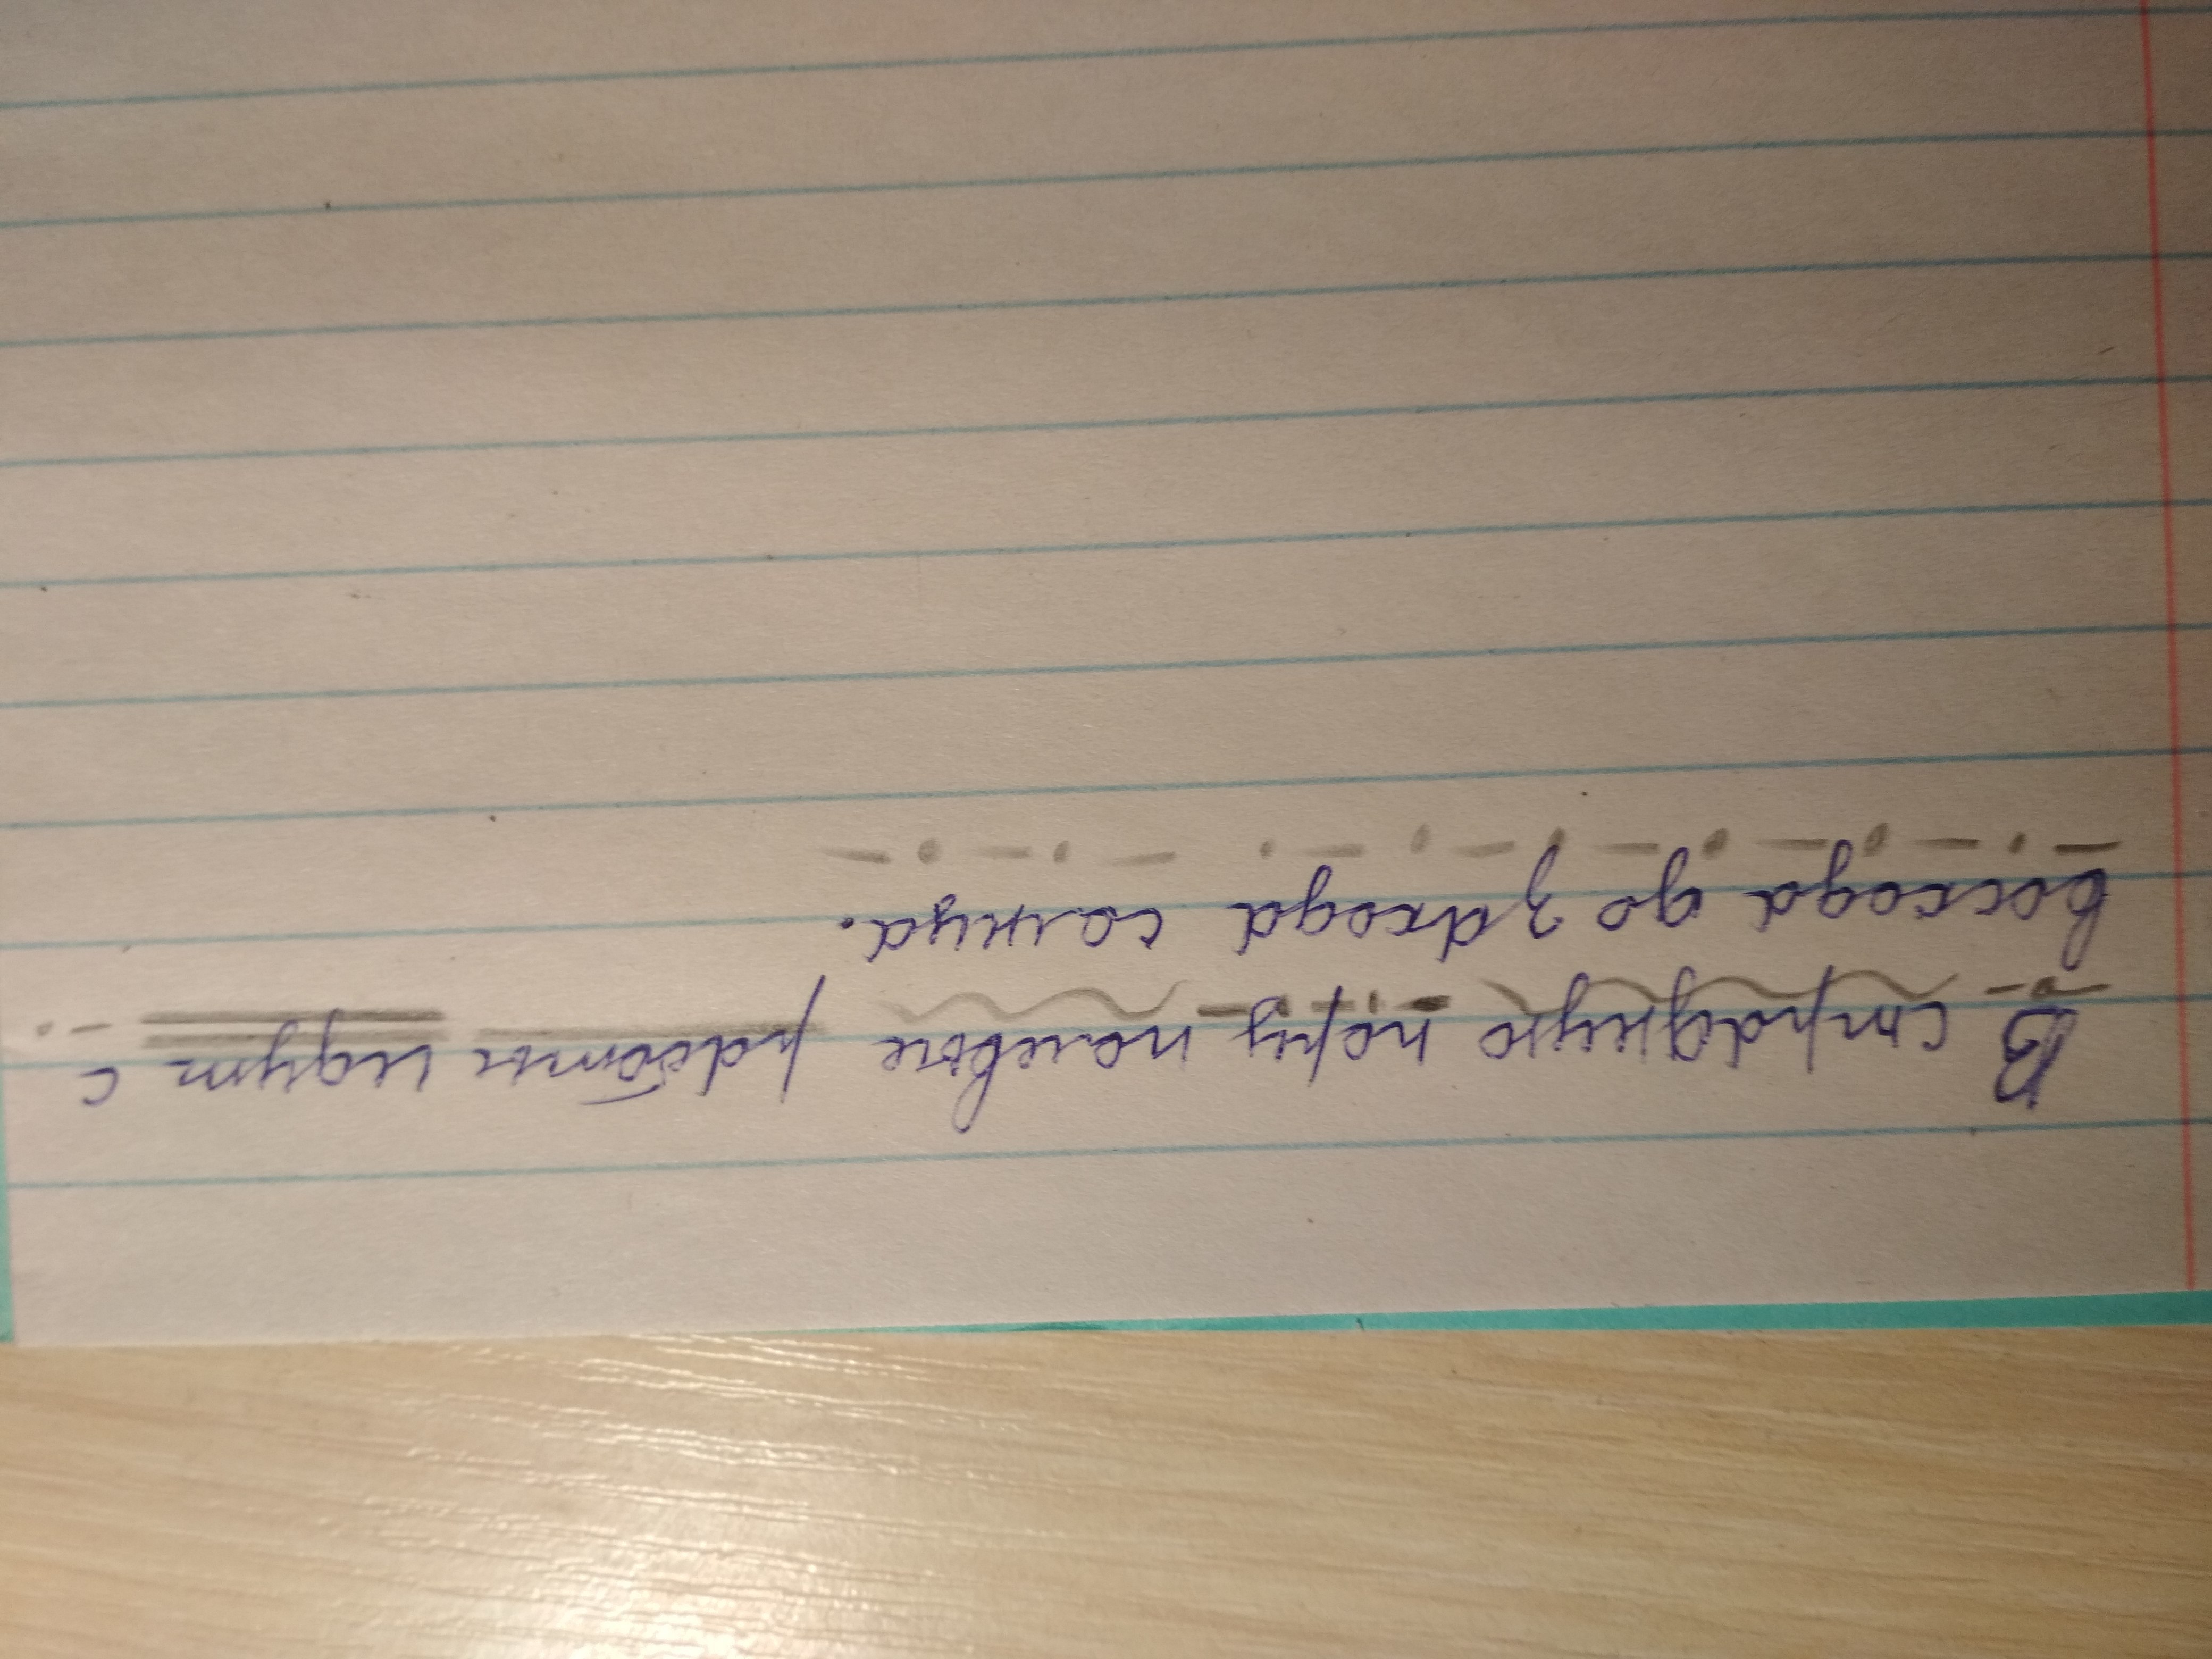 В страдную пору полевые работы идут с
восхода до захода солнца.